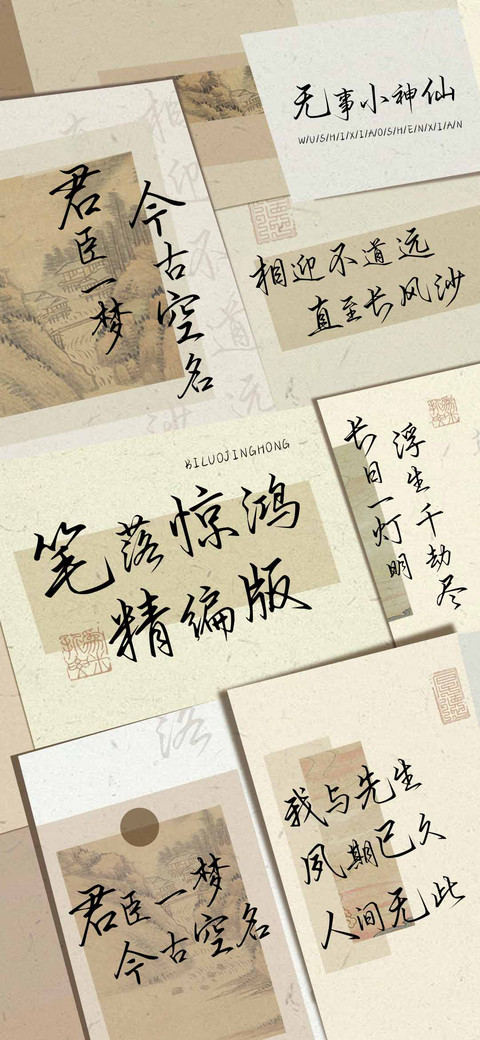 无事小神仙
W/U/S/H/I/X/I/A/O/S/H/E/N/X/I/A/N
今古空名
君臣一梦
相迎不道远
直至长风沙
BILUOJINGHONG
笔落惊鸿
精编版
浮生千劫尽
长日一灯明
君臣一梦
今古空名
我与先生
夙期已久
人间无此